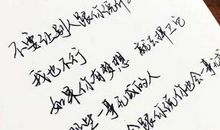 不要让别人跟你说你
我也不行
就去捍卫它
如果你有梦想
那些一事无成的人
会跟你说你也会一事无成